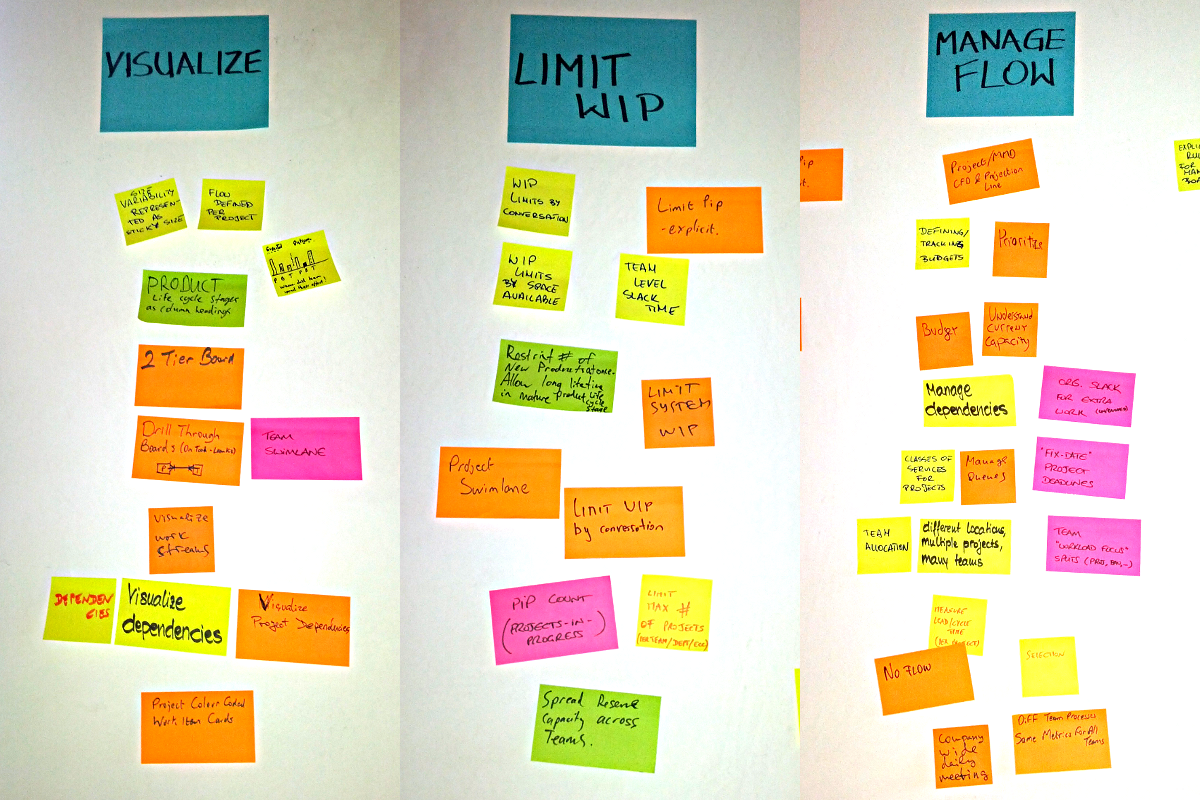 VISUALIZE
SIZE
VARIABILITY
REPRESEN-
TED AS
STICKY SIZE
FLOW
DEFINED
PER
PROJECT
PRODUCT
Life cycle stages
as column headings
2 Tier Board
Drill Through
Boards
TEAM
SWIMLANE
Visualize
work
streams
DEPENDEN
CIES
Visualize
dependencies
Visualize
Project Dependencies
Project Colour Coded
Work Item Cards
LIMIT
WIP
WIP
LIMITS BY
CONVERSATION
Limit Pip
-explicit.
WIP
LIMITS
BY SPACE
AVAILABLE
TEAM
LEVEL
SLACK
TIME
Restrict # of
New Product
Allow long
in mature product life
cycle
stage
LIMIT
SYSTEM
WIP
Project
Swimlane
LIMIT WIP
by conversation
PIP COUNT
(PROJECTS-IN-
PROGRESS)
LIMIT
MAX #
OF PROJECTS
(PER TEAM/DEPT/
Spread Reserve
Capacity across
Teams.
MANAGE
FLOW
Pip
it.
Project/MMD
CFD & Projection
Line
EXPLI
RU
FOR
MAN
BOA
DEFINING/
TRACKING
BUDGETS
Priorities
Budget
Understand
Current
Capacity
Manage
dependencies
ORG. SLACK
FOR EXTRA
WORK
CLASSES OF
SERVICES
FOR
PROJECTS
Manage
Queues
"FIX-DATE"
PROJECT
DEADLINES
TEAM
ALLOCATION
different locations,
multiple projects,
many teams
TEAM
"WORKLOAD FOCUS"
SPLITS
MEASURE
LEAD/CYCLE
TIME
(PER PROJECT)
NO FLOW
SELECTION
Company
wide
daily
meeting
Diff Team Processes
Same Metrics For All
Teams